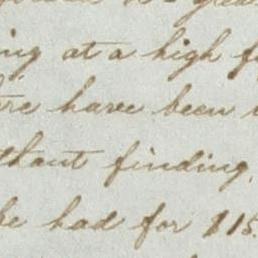 ing at a high
have been
thout finding,
he had for $15.